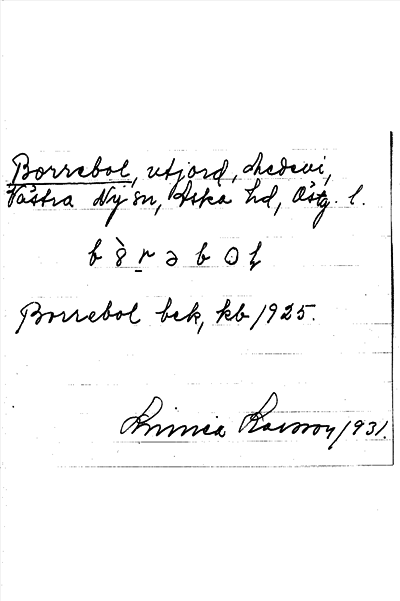 Borrebol, utjord, Medevi,
Västra Ny sn, Aska hd, Östg. l.
Borrebol bek, kb 1925.
1931.